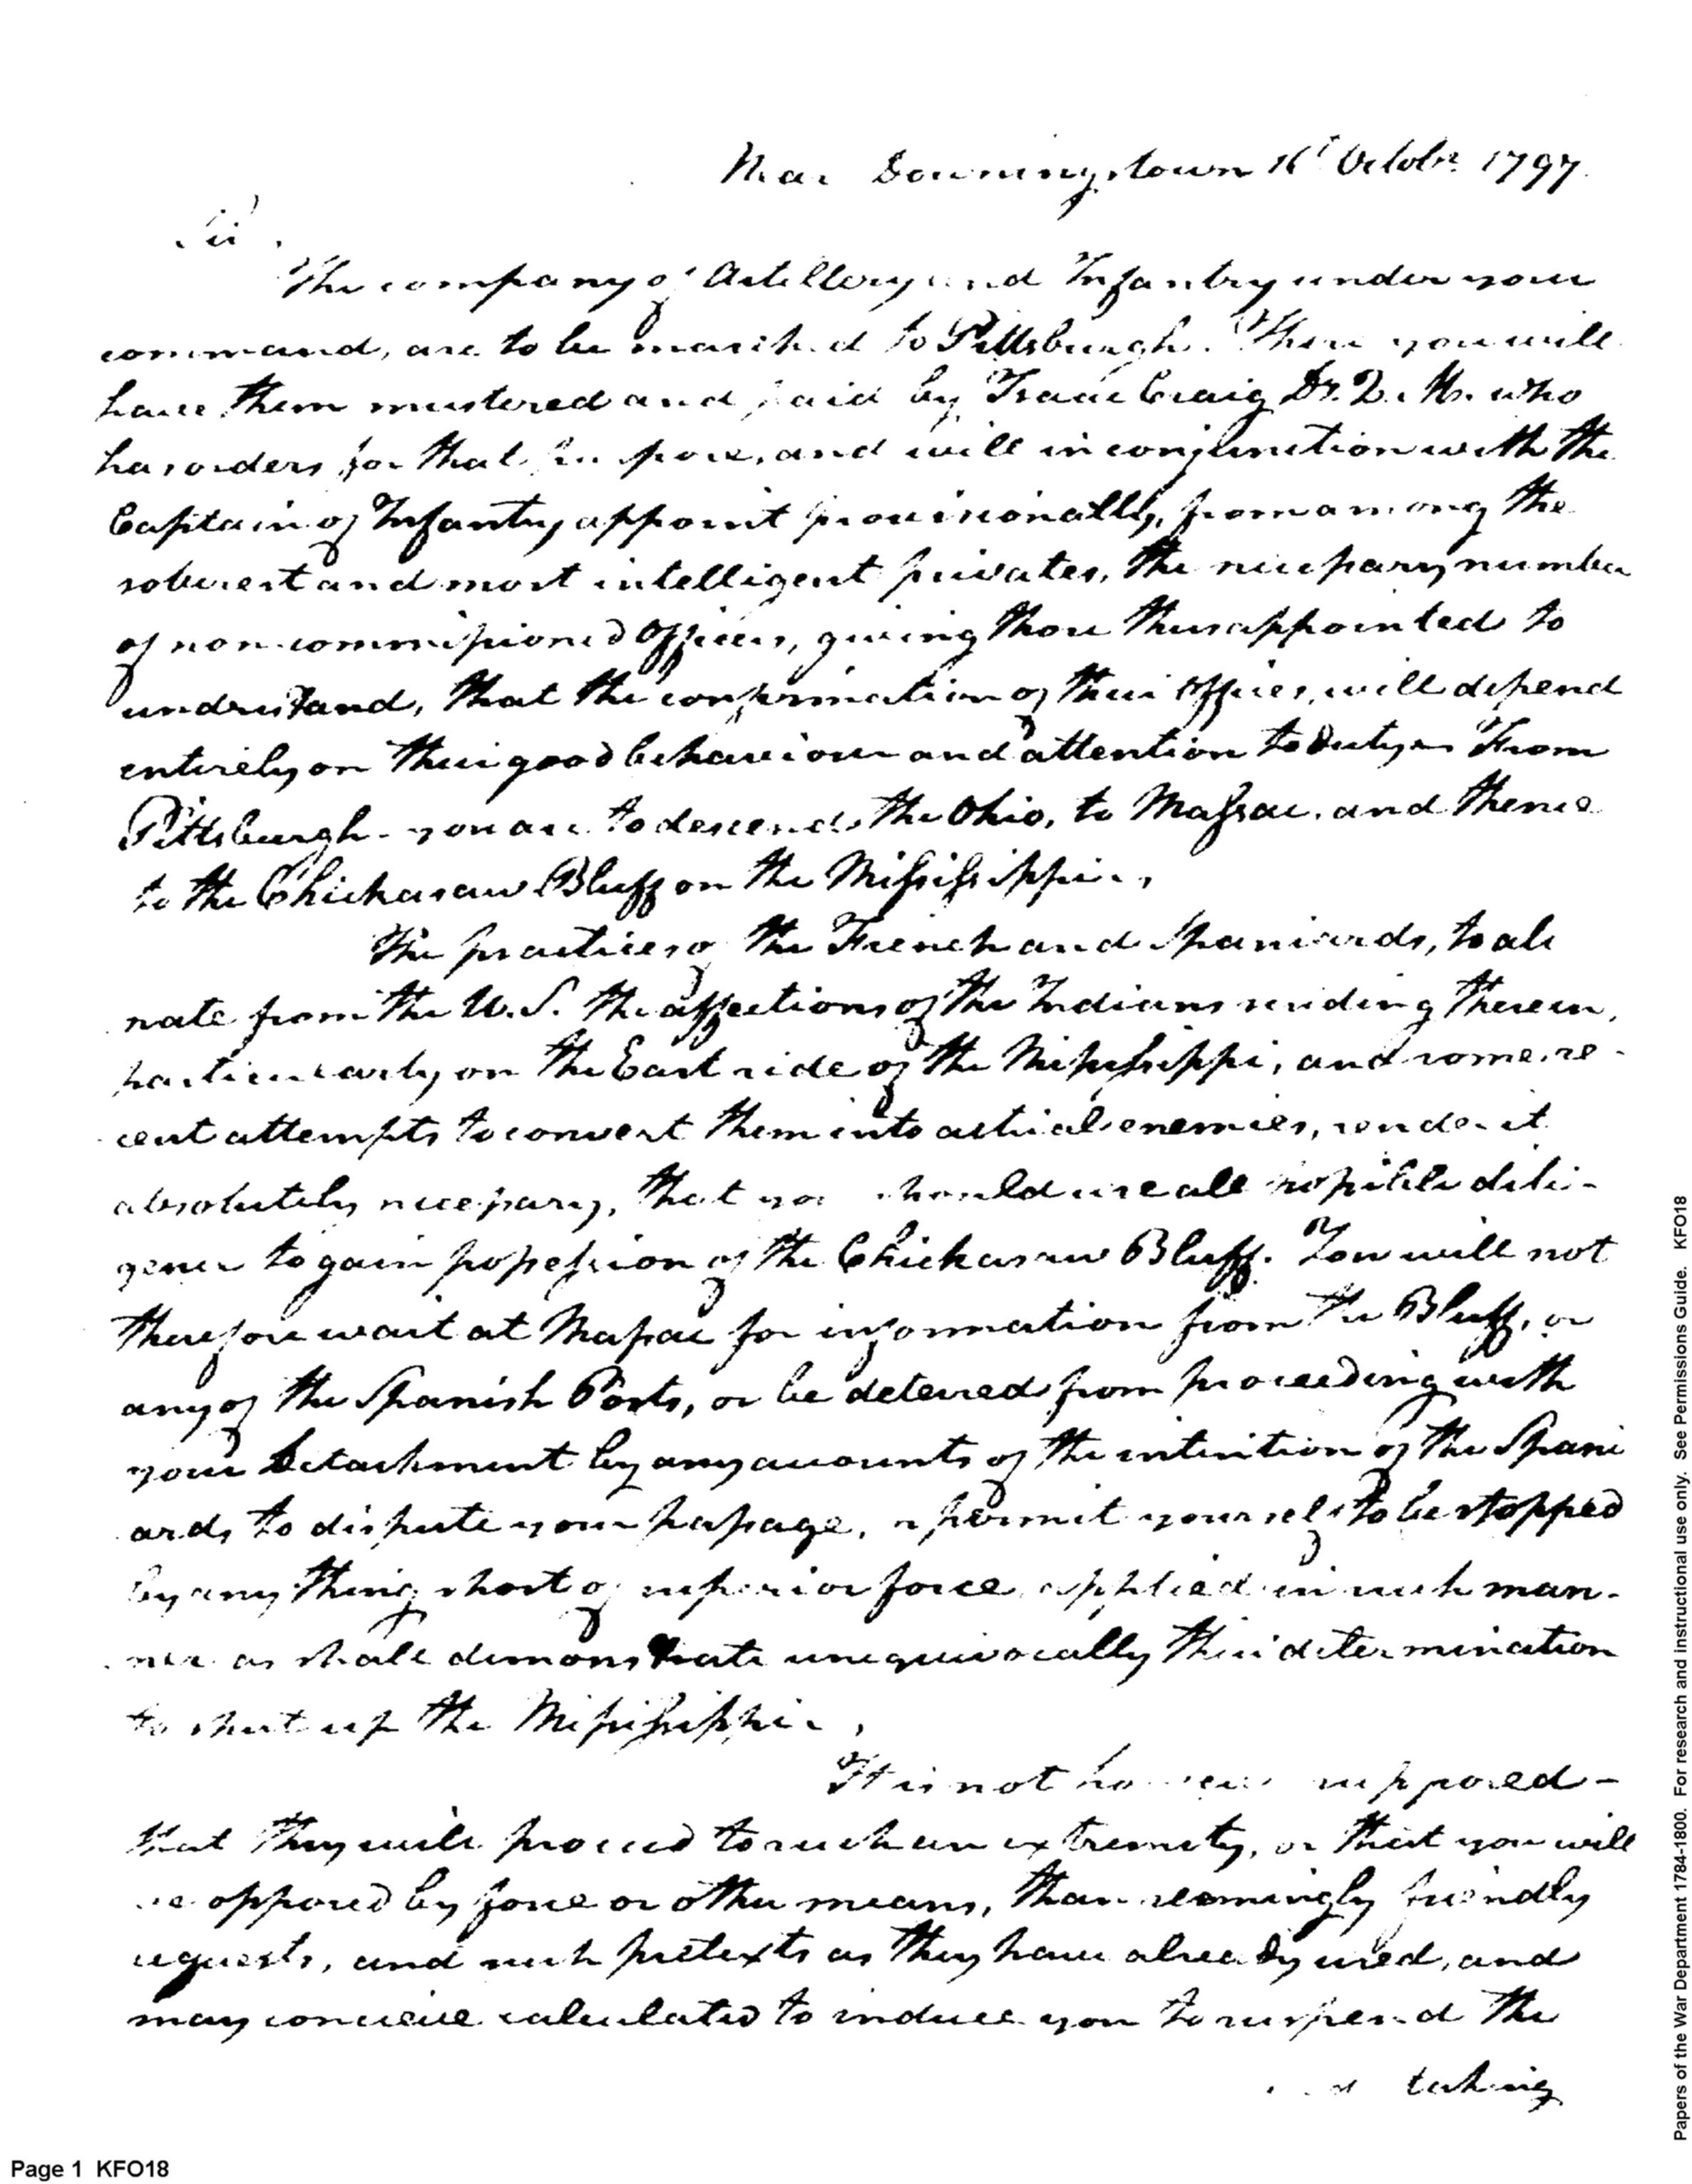 Near Downingstown 16t Octobr. 1797.
Sir.
The company of Artillery and Infantry under your
command, are to be marched to Pittsburgh. There you will
have them mustered and paid by Isaac Craig D. Q. M. who
has orders for that purpose, and will in conjunction with the
Captain of Infantry appoint provisionally, from among the
soberest and most intelligent privates, the necessary number
of non commissioned Officers, giving those thus appointed to
understand, that the confirmation of their Offices, will depend
entirely on their good behaviour and attention to Duty. From
Pittsburgh you are to descend the Ohio, to Massac, and thence
to the Chickasaw Bluff on the Mississippi.
The practices of the French and Spaniards, to alie
nate from the U.S. the affections of the Indians residing therein,
particularly on the East side of the Mississippi, and some re-
cent attempts to convert them into actual enemies, render it
absolutely necessary, that you should use all possible dili-
gence to gain possession of the Chickasaw Bluff. You will not
therefore wait at Massac for information from the Bluff, or
any of the Spanish Posts, or be deterred from proceeding with
your Detachment by any accounts of the intention of the Spani
ards to dispute your passage, or permit yourself to be stopped
by any thing short of superior force applied in such man-
ner as shall demonstrate unequivocally their determination
to shut up the Mississippi.
It is not however supposed-
that they will proceed to such an extremity, or that you will
be opposed by force or other means, than seemingly friendly
requests, and such pretexts as they have already used, and
may conceive calculated to induce you to suspend the
taking
Page 1 KFO18
Papers of the War Department 1784-1800. For research and instructional use only. See Permissions Guide. KFO18